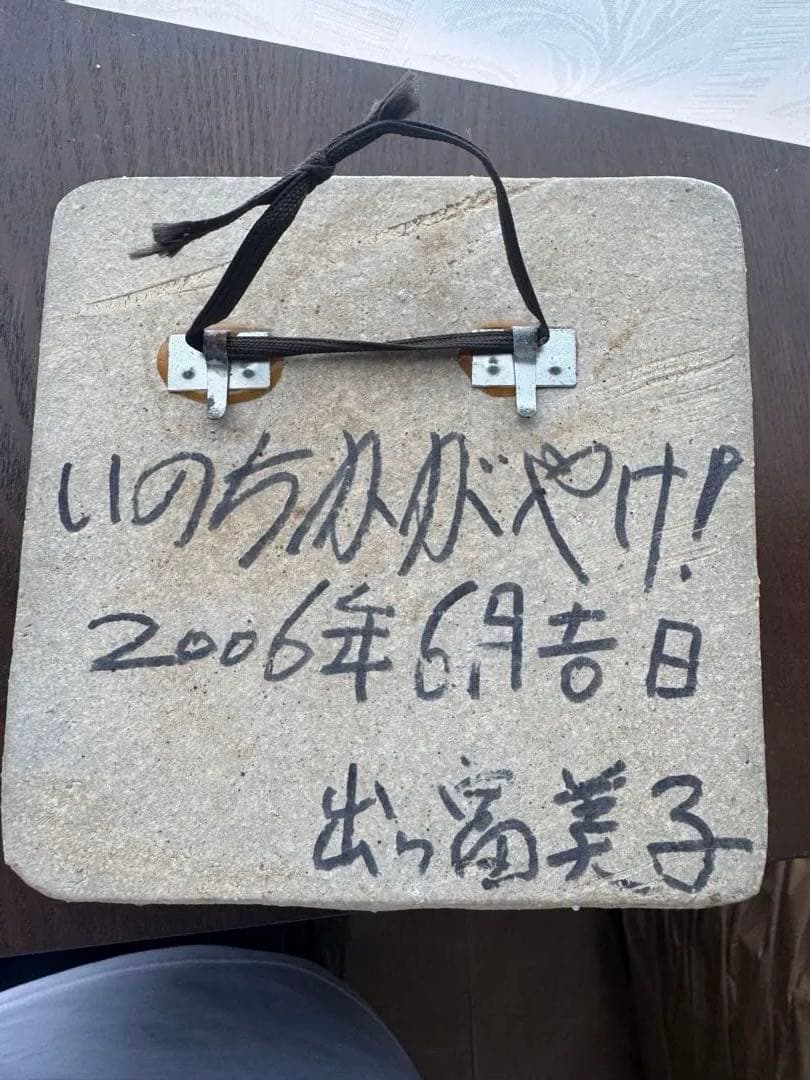 いのちかがやけ!
2006年6月吉日
出口富美子